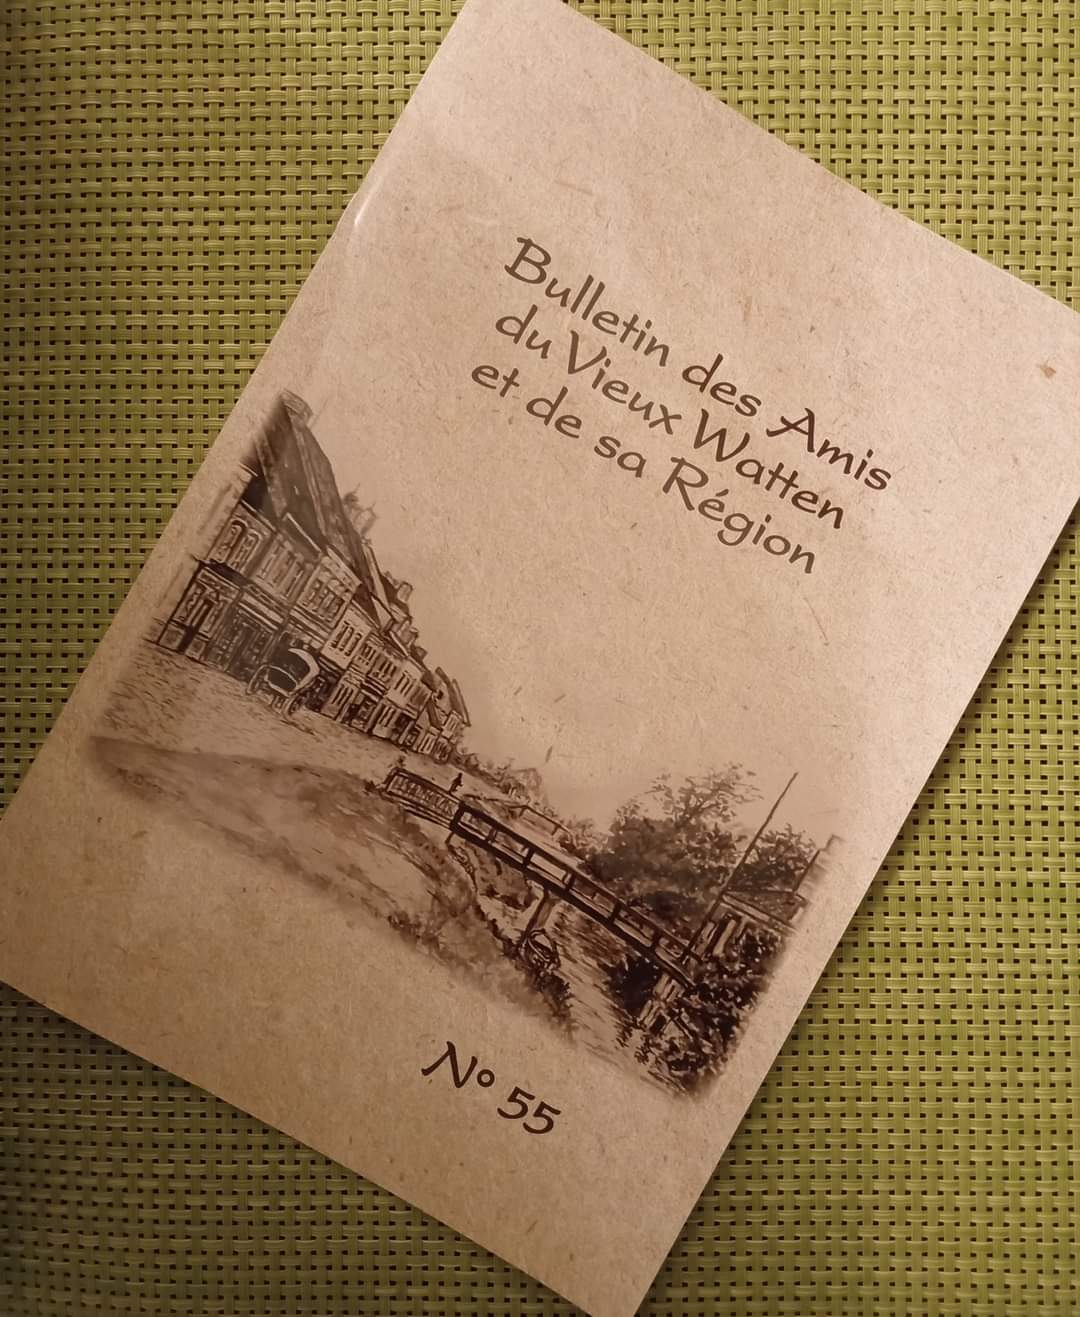 Bulletin des Amis
du Vieux Watten
et de sa Région
N° 55